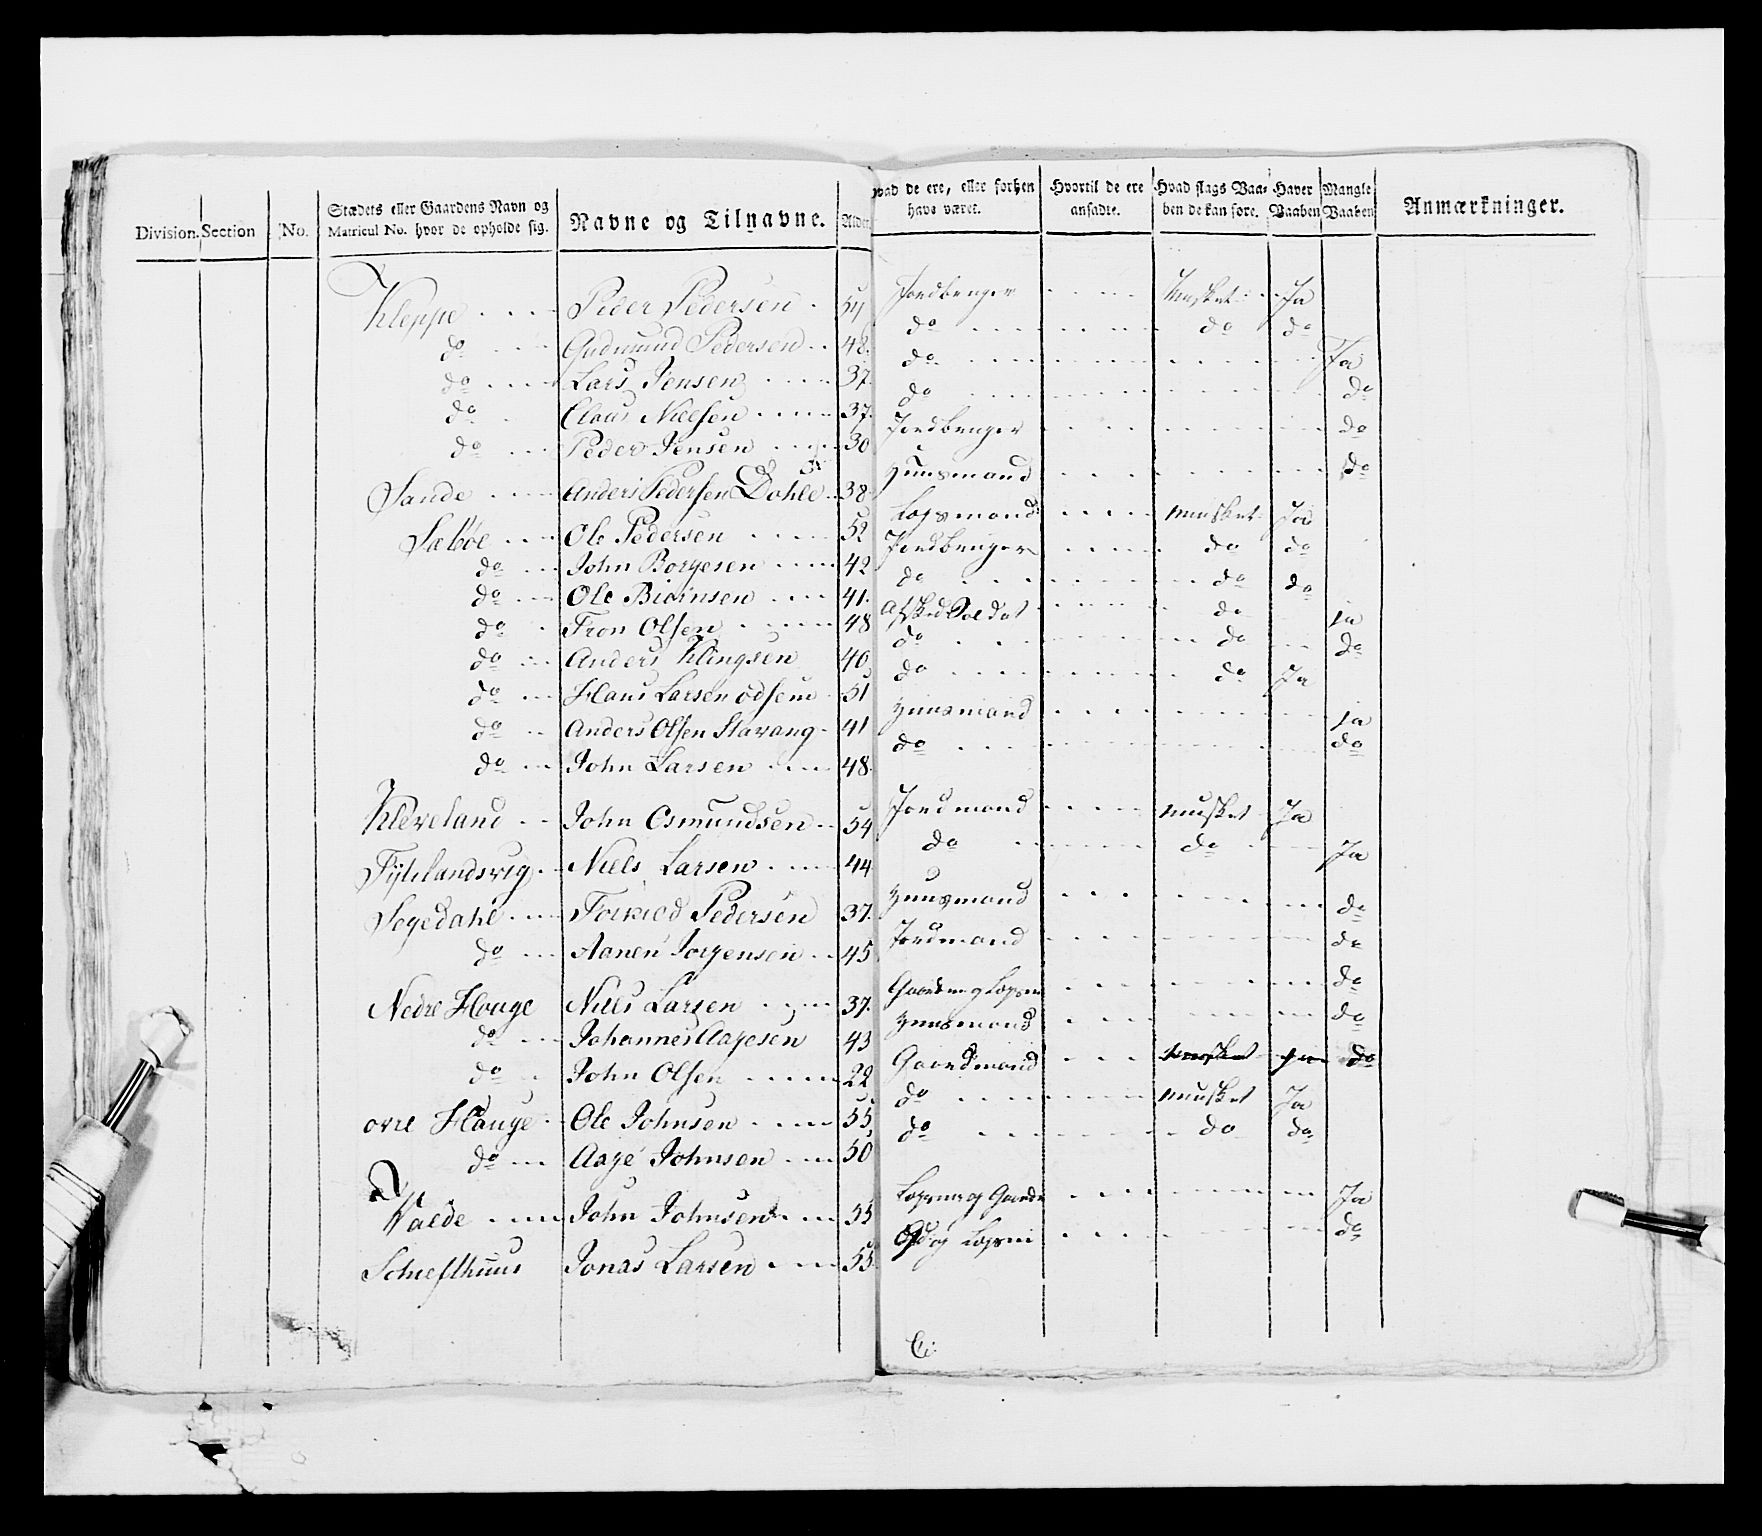 Division. Section No. Stædets eller Gaardens Navn og Matricul No. hvor de opholde sig. Navne og Tilnavne. Alder hvad de ere, eller forhen have været. Hvortil de ere ansadte. Hvad slags Vaaben de kan føre. Haver Vaaben Mangle Vaaben Anmærkninger.
Kleppe Peder Pedersen 54 Jordbruger Musket Ja
do Gudmund Pedersen 48. do do do
do Lars Jensen 37. do Ja
do Claus Nielsen 37. do do
do Peder Jensen 30 Jordbruger do
Sande Anders Pedersen Dohle 38. Huusmand do
Sæbøe Ole Pedersen 52 Losmand musket Ja
do John Borgesen 42 Jordbruger do do
do Ole Biørnsen 41. do do do
do Tron Olsen 48 Afsked Soldat do ja
do Anders Klingsen 40 do do do
do Hans Larsen 51 do do Ja
do Anders Olsen Stavang 41 Huusmand ja
do John Larsen 48. do do
Kleveland John Osmundsen 54 Jordmand musket Ja
Niels Larsen 44 do do Ja
Søgedahl Pedersen 37. Huusmand do
do Aanen Jorgensen 45 Jordmand do
Nedre Houge Niels Larsen 37. do
do Johannes Aagesen 43 Huusmand do
do John Olsen 22 Gaardmand musket do
ovre Hauge Ole Johnsen 55 do musket Ja
do Aage Johnsen 50 do do do
Valde John Johnsen 55 Ja
Jonas Larsen 55 do